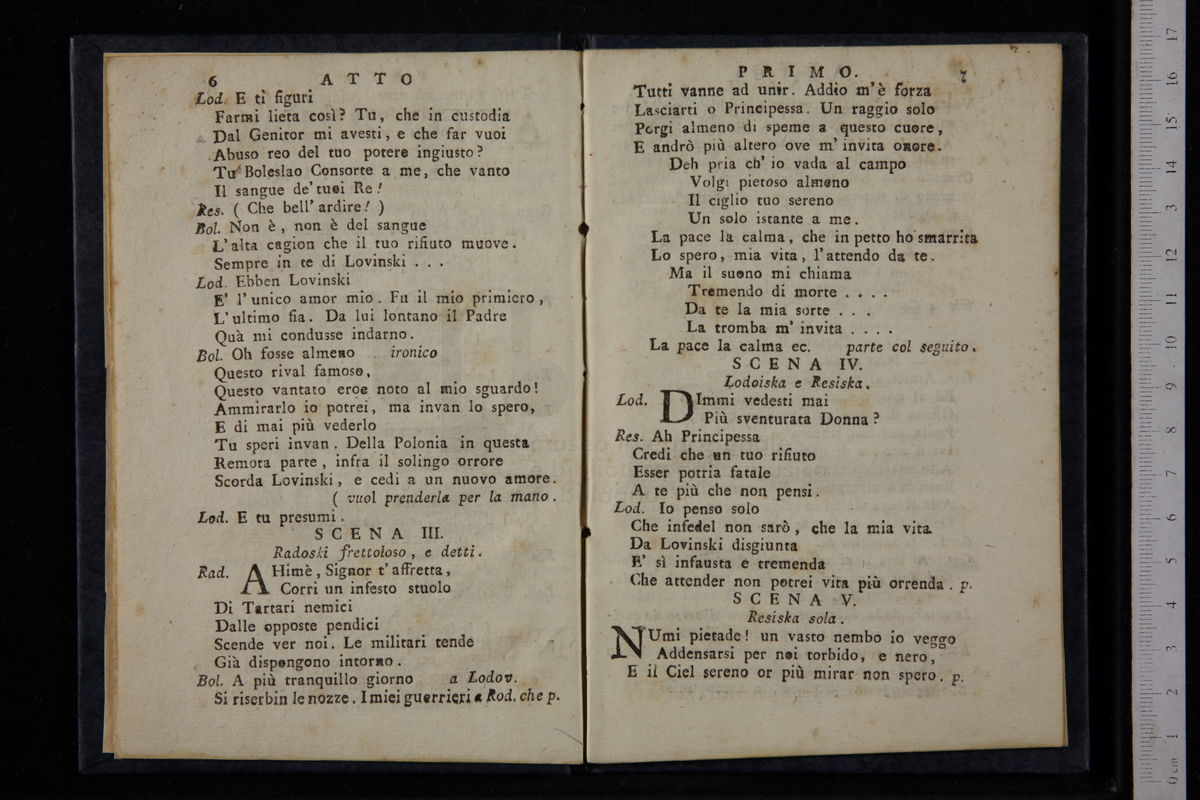 6 ATTO
Lod. E tì figuri
Farmi lieta così? Tu, che in custodia
Dal Genitor mi avesti, e che far vuoi
Abuso reo del tuo potere ingiusto?
Tu Boleslao Consorte a me, che vanto
Il sangue de' tuoi Re!
Res. ( Che bell' ardire! )
Bol. Non è, non è del sangue
L'alta cagion che il tuo rifiuto muove.
Sempre in te di Lovinski . . .
Lod. Ebben Lovinski
E' l'unico amor mio. Fu il mio primiero,
L'ultimo fia. Da lui lontano il Padre
Quà mi condusse indarno.
Bol. Oh fosse almeno ironico
Questo rival famoso,
Questo vantato eroe noto al mio sguardo!
Ammirarlo io potrei, ma invan lo spero,
E di mai più vederlo
Tu speri invan. Della Polonia in questa
Remota parte, infra il solingo orrore
Scorda Lovinski, e cedi a un nuovo amore.
( vuol prenderla per la mano.
Lod. E tu presumi.
SCENA III.
Radoski frettoloso, e detti.
Rad. AHimè, Signor t'affretta,
Corri un infesto stuolo
Di Tartari nemici
Dalle opposte pendici
Scende ver noi. Le militari tende
Già dispongono intorno.
Bol. A più tranquillo giorno a Lodov.
Si riserbin le nozze. I miei guerrieri a Rod. che p.
PRIMO. 7
Tutti vanne ad unir. Addio m'è forza
Lasciarti o Principessa. Un raggio solo
Porgi almeno di speme a questo cuore,
E andrò più altero ove m'invita onore.
Deh pria ch' io vada al campo
Volgi pietoso almeno
Il ciglio tuo sereno
Un solo istante a me.
La pace la calma, che in petto ho smarrita
Lo spero, mia vita, l'attendo da te.
Ma il suono mi chiama
Tremendo di morte . . . .
Da te la mia sorte . . .
La tromba m' invita . . . .
La pace la calma ec. parte col seguito.
SCENA IV.
Lodoiska e Resiska.
Lod. DImmi vedesti mai
Più sventurata Donna?
Res. Ah Principessa
Credi che un tuo rifiuto
Esser potria fatale
A te più che non pensi.
Lod. Io penso solo
Che infedel non sarò, che la mia vita
Da Lovinski disgiunta
E' sì infausta e tremenda
Che attender non potrei vita più orrenda. p.
SCENA V.
Resiska sola.
NUmi pietade! un vasto nembo io veggo
Addensarsi per noi torbido, e nero,
E il Ciel sereno or più mirar non spero. p.
0 cm 1 2 3 4 5 6 7 8 9 10 11 12 13 14 15 16 17